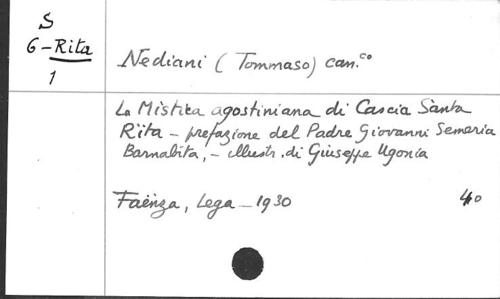 S
6-Rita
1
Nediani (Tommaso) can.co
La Mistica agostiniana di Cascia Santa
Rita - prefazione del Padre Giovanni Semeria
Barnabita, - illustr. di Giuseppe Ugonia
Faenza, Lega - 1930
40